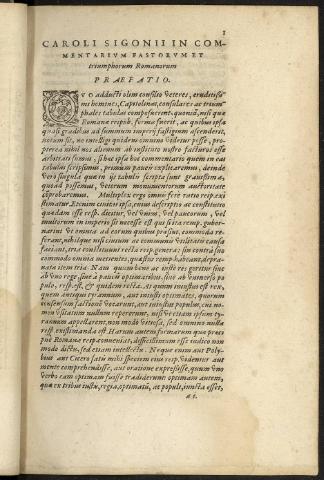 1
CAROLI SIGONII IN COM-
MENTARIVM FASTORVM ET
triumphorum Romanorum
PRAEFATIO.
VO adducti olim consilio Veteres, eruditissi-
mi homines, Capitolinas, consulares ac trium
phales tabulas composuerint, quoniā, nisi quæ
Romanæ reipub. forma fuerit, ac quibus ipsa
quasi gradibus ad summum imperij fastigium ascenderit,
notum sit, ne intelligi quidem omnino videtur posse, pro-
pterea nihil nos alienum ab instituto nostro facturos esse
arbitrati sumus, si hæc ipsa hoc commentario quem in eas
tabulas scripsimus, primum paucis explicaremus, deinde
verò singula quæ in ijs tabulis scripta sunt grauissima,
quoad possemus, veterum monumentorum auctoritate
comprobaremus. Multiplex ergo omni ferè ratio resp. exi
stimatur. Etenim ciuitas ipsa, cuius descriptio ac constitutio
quædam esse resp. dicitur, vel vnius, vel paucorum, vel
multorum in imperio sit necesse est qui si ita remp. guber-
nabunt vt omnia ad eorum quibus præsint, commoda re-
ferant, nihilque nisi ciuium ac communis vtilitatis causa
faciant, tres constituunt recta resp. genera: sin contrà suo
commodo omnia metientes, quæstui remp. habeant, depra-
nata item tria. Nam quum bene ac iustè res geritur siue
ab vno rege, siue à paucis optimatibus, siue ab vniuerso po
pulo, resp. est, & quidem recta. At quum iniustus est rex,
quem antiqui tyrannum, aut iniusti optimates, quorum
consensum factionem vocarunt, aut iniustus populus, cui no-
men vsitatum nullum repererunt, nisi vt etiam ipsum ty-
rannum appellarent, non modò vitiosa, sed omnino nulla
resp. existimanda est. Harum autem formarum quæ præci
puè Romanæ resp. conueniat, difficillimum esse iudico non
modò dictu, sed etiam intellectu. Neque enim aut Poly-
bius aut Cicero satis mihi speciem eius resp. videntur aut
mente comprehendisse, aut oratione expressisse, quum vno
verbo eam optimam fuisse tradiderunt: optimam autem,
quæ ex tribus iustis, regia, optimatū, ac populi, iuncta esset,
a.j.